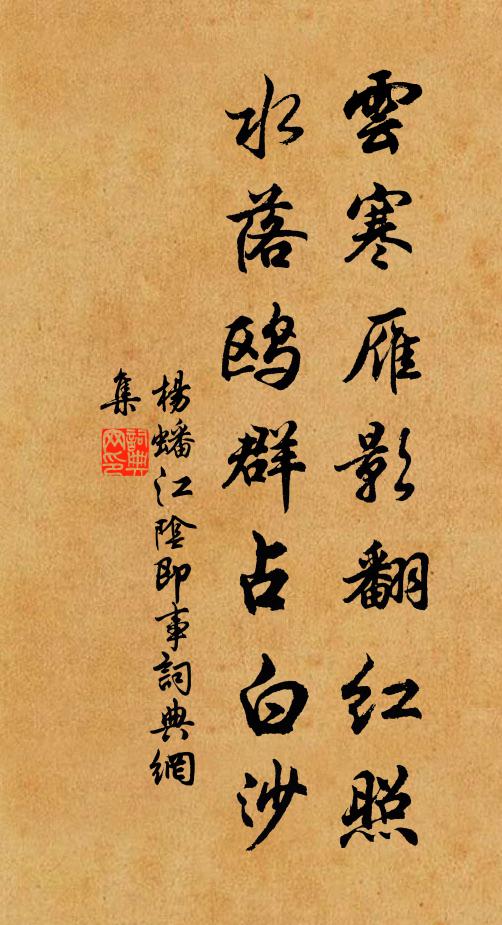 雲寒雁影翻红照
水落鸥群占白沙
楊蟠江陰即事詞典網
集
詞典
网印